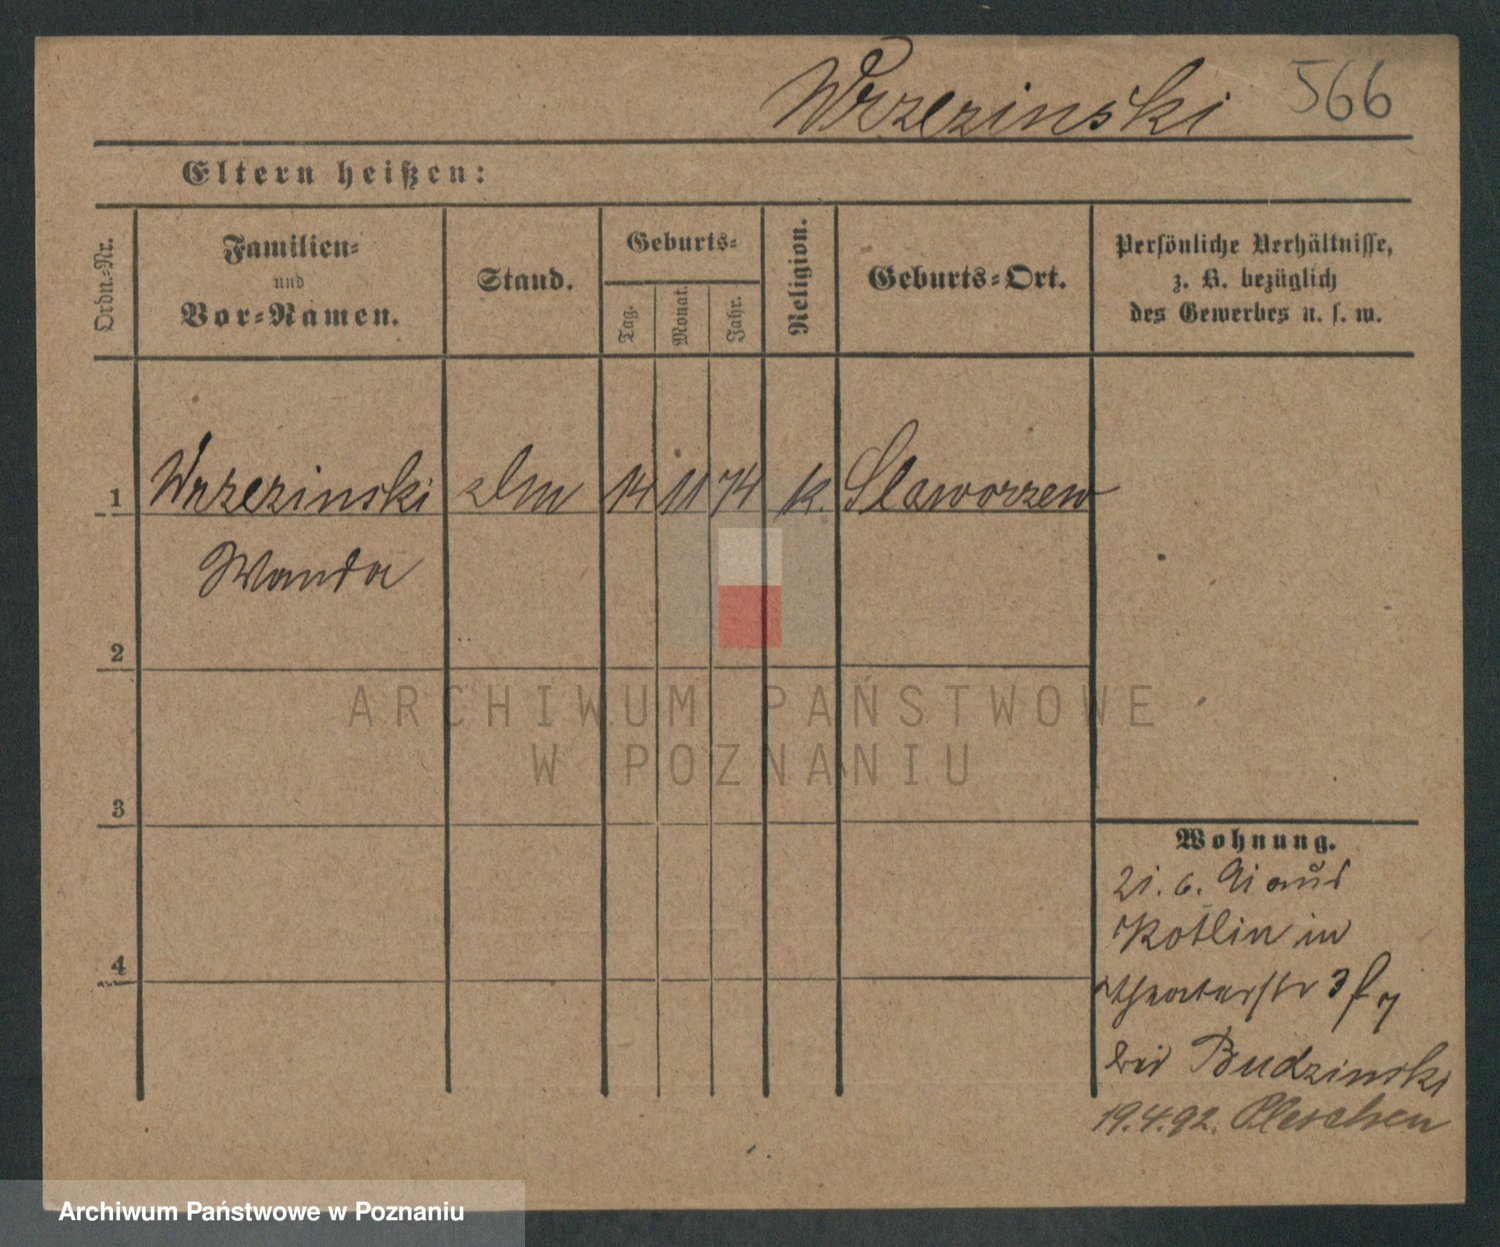 Wrzezinski 566
Eltern heißen:
Ordn.-Nr.
Familien-
und
Vor-Namen.
Stand.
Geburts-
Tag.
Monat.
Jahr.
Religion.
Geburts-Ort.
Persönliche Verhältnisse,
z. B. bezüglich
des Gewerbes u. s. w.
1 Wrzezinski 14 11 74 k. Slaworzew
Wanda
2
ARCHIWUM PAŃSTWOWE
W POZNANIU
3
4
Wohnung.
21. 6. 91 aus
Kotlin in
Theaterstr 3
bei Budzinski
19.4.92. Pleschen
Archiwum Państwowe w Poznaniu